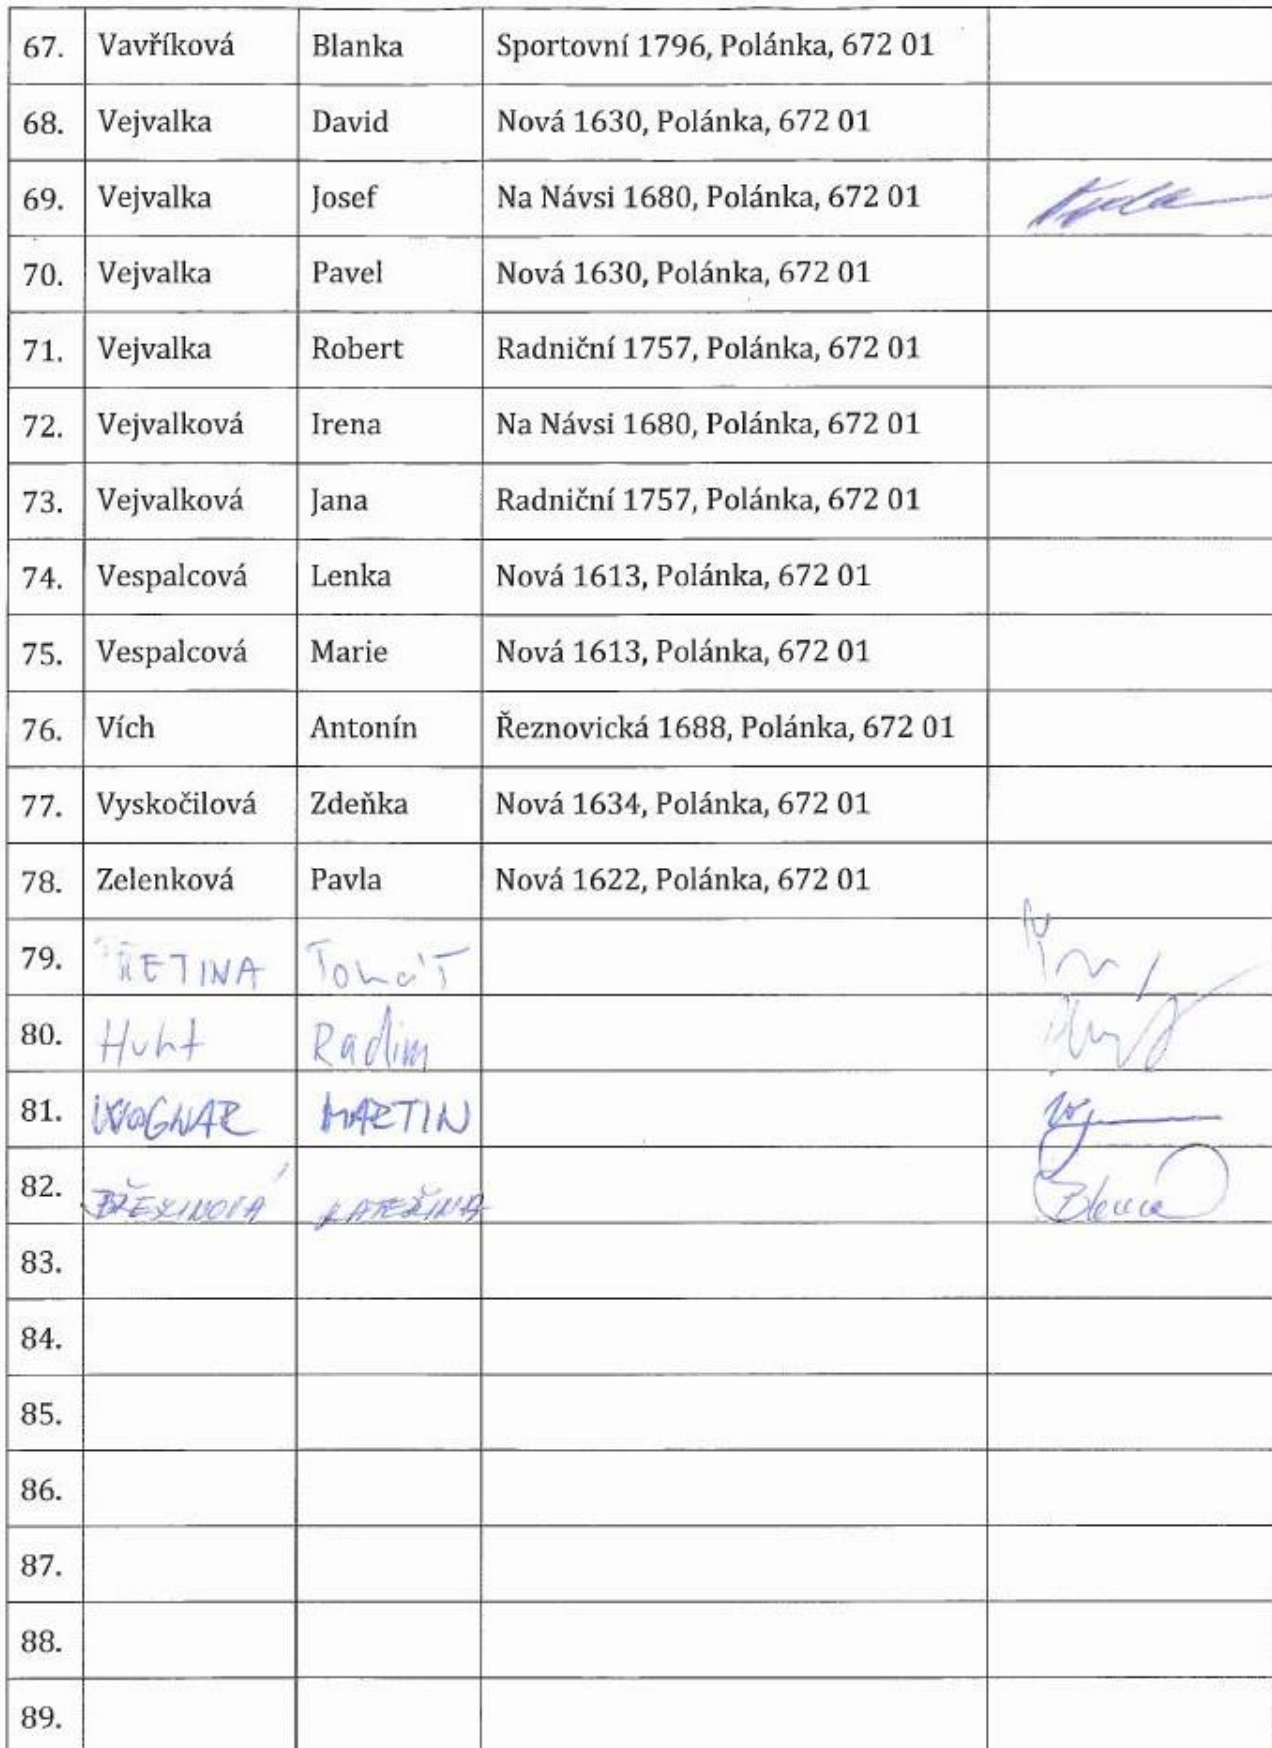 67. Vavříková Blanka Sportovní 1796, Polánka, 672 01
68. Vejvalka David Nová 1630, Polánka, 672 01
69. Vejvalka Josef Na Návsi 1680, Polánka, 672 01
70. Vejvalka Pavel Nová 1630, Polánka, 672 01
71. Vejvalka Robert Radniční 1757, Polánka, 672 01
72. Vejvalková Irena Na Návsi 1680, Polánka, 672 01
73. Vejvalková Jana Radniční 1757, Polánka, 672 01
74. Vespalcová Lenka Nová 1613, Polánka, 672 01
75. Vespalcová Marie Nová 1613, Polánka, 672 01
76. Vích Antonín Řeznovická 1688, Polánka, 672 01
77. Vyskočilová Zdeňka Nová 1634, Polánka, 672 01
78. Zelenková Pavla Nová 1622, Polánka, 672 01
79. ŘETINA
80. Radim
81. MARTIN
82. BŘEZINOVÁ KATEŘINA
83.
84.
85.
86.
87.
88.
89.